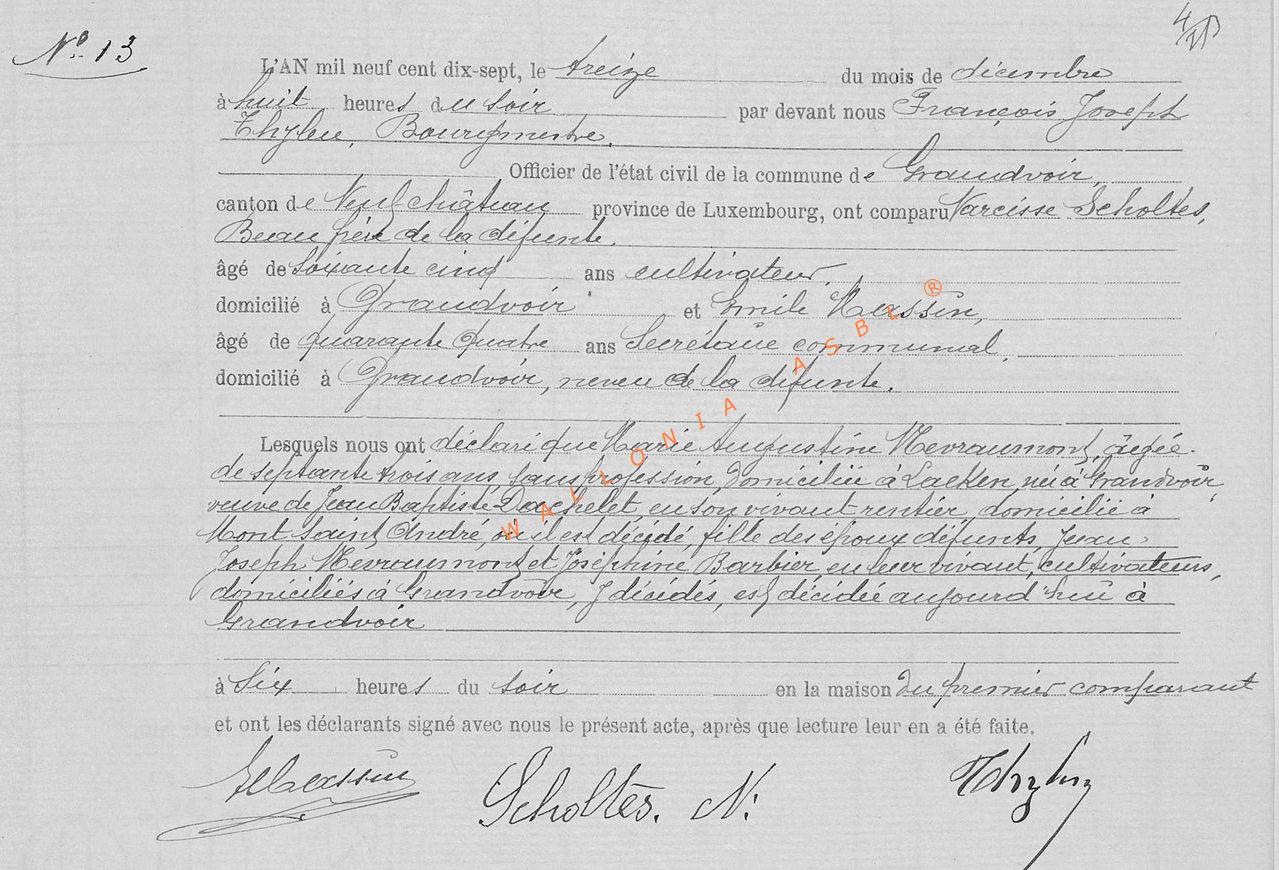 Nº 13
L'AN mil neuf cent dix-sept, le treize du mois de décembre
à huit heures du soir par devant nous François Joseph
Thyleu, Bourgmestre.
Officier de l'état civil de la commune de Grandvoir,
canton de Neufchâteau province de Luxembourg, ont comparu Narcisse Scholtès,
Beau frère de la défunte.
âgé de soixante cinq ans cultivateur,
domicilié à Grandvoir et Emile Massin,
âgé de quarante quatre ans Secrétaire communal,
domicilié à Grandvoir, neveu de la défunte.
Lesquels nous ont déclaré que Marie Augustine Nevraumont, âgée
de septante trois ans, sans profession, domiciliée à Laeken, née à Grandvoir,
veuve de Jean Baptiste Dachelet en son vivant rentier, domicilié à
Mont Saint André, où il est décédé, fille des époux défunts Jean
Joseph Nevraumont et Joséphine Barbier en leur vivant, cultivateurs,
domiciliés à Grandvoir, y décédés, est décédée aujourd'hui à
Grandvoir
à Six heures du soir en la maison du premier comparant
et ont les déclarants signé avec nous le présent acte, après que lecture leur en a été faite.
EMassin Scholtès. N.
WALLONIA ASBL ®